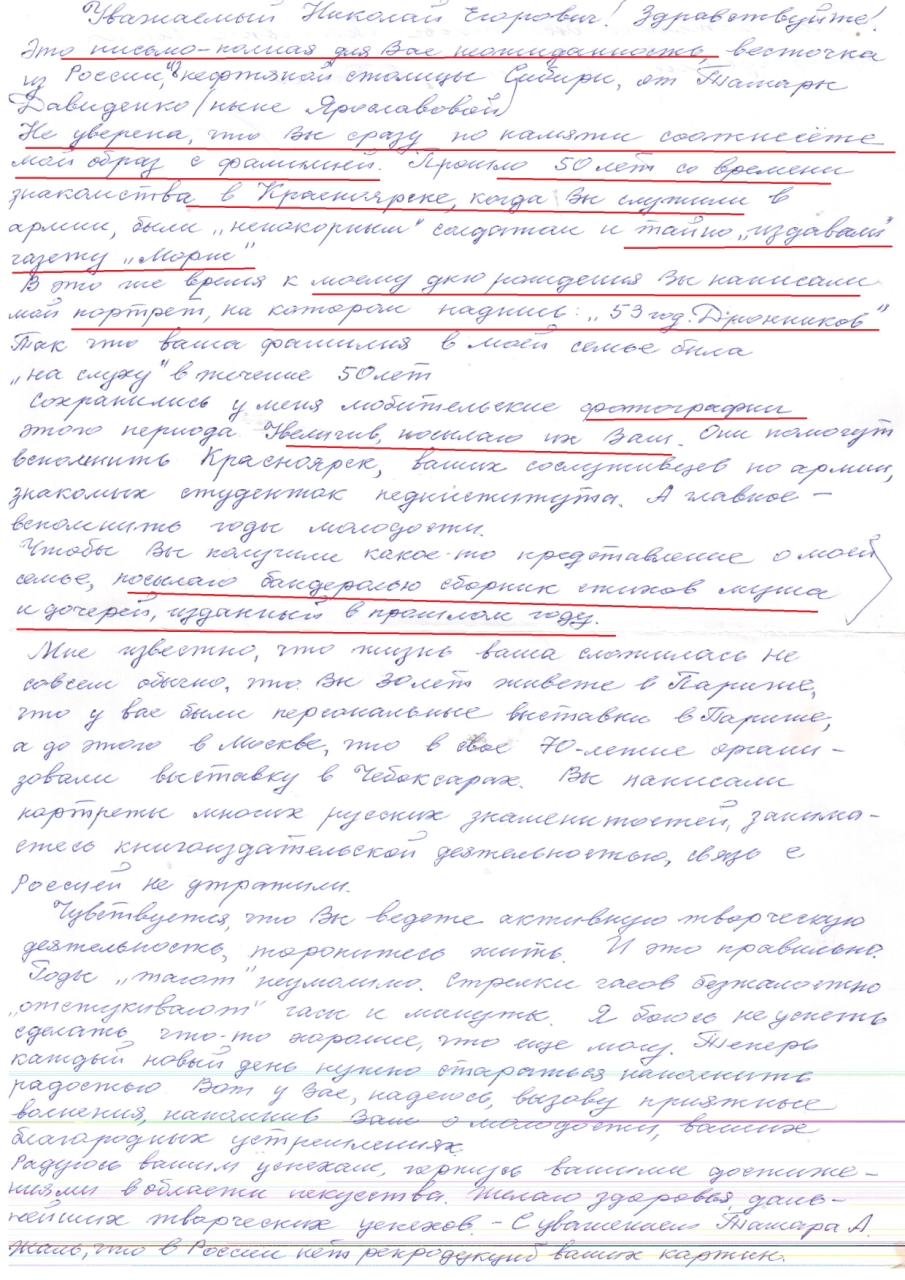 Уважаемый Николай Егорович! Здравствуйте!
Это письмо-полная для Вас неожиданность, весточка
из России, из нефтяной столицы Сибири, от Тамары
Давиденко (ныне Ярославовой)
Не уверена, что Вы сразу по памяти соотнесёте
мой образ с фамилией. Прошло 50 лет со времени
знакомства в Красноярске, когда Вы служили в
армии, были „непокорным" солдатом и тайно „издавали"
газету „Морж"
В это же время к моему дню рождения Вы написали
мой портрет, на котором надпись: „53 год. Дронников"
Так что ваша фамилия в моей семье была
„на слуху" в течение 50 лет
Сохранились у меня любительские фотографии
этого периода. Увеличив, посылаю их Вам. Они помогут
вспомнить Красноярск, ваших сослуживцев по армии,
знакомых студенток пединститута. А главное –
вспомнить годы молодости.
Чтобы Вы получили какое-то представление о моей
семье, посылаю бандеролью сборник стихов мужа
и дочерей, изданный в прошлом году.
Мне известно, что жизнь ваша сложилась не
совсем обычно, что Вы 30 лет живете в Париже,
что у вас были персональные выставки в Париже,
а до этого в Москве, что в свое 70-летие органи-
зовали выставку в Чебоксарах. Вы написали
портреты многих русских знаменитостей, занима-
етесь книгоиздательской деятельностью, связь с
Россией не утратили.
Чувствуется, что Вы ведете активную творческую
деятельность, торопитесь жить. И это правильно.
Годы „тают" неумолимо. Стрелки часов безжалостно
„отстукивают" часы и минуты. Я боюсь не успеть
сделать что-то хорошее, что еще могу. Теперь
каждый новый день нужно стараться наполнить
радостью Вот у Вас, надеюсь, вызову приятные
волнения, напомнив Вам о молодости, ваших
благородных устремлениях.
Радуюсь вашим успехам, горжусь вашими достиже-
ниями в области искусства. Желаю здоровья, даль-
нейших творческих успехов. - С уважением Тамара А.
Жаль, что в России нет репродукций ваших картин.